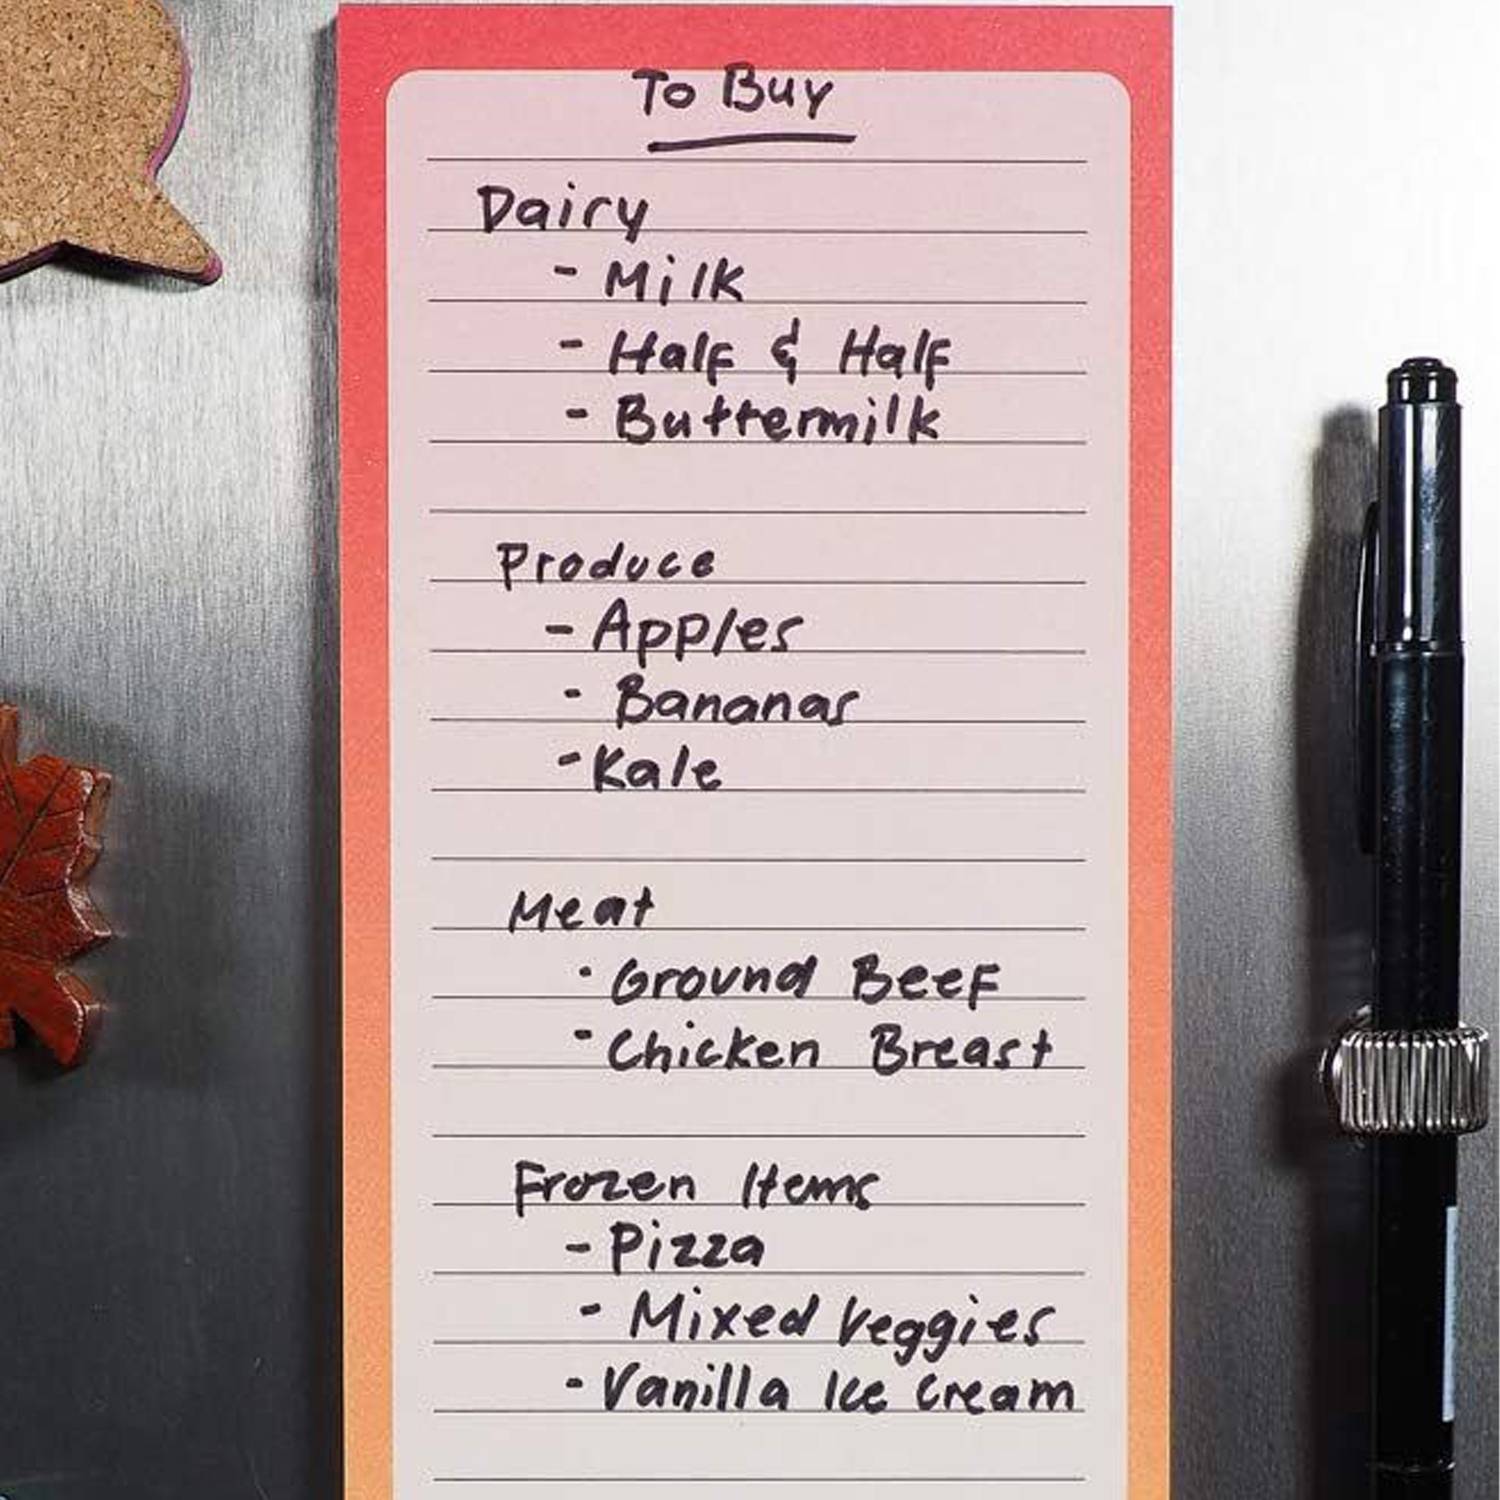 To Buy
Dairy
- Milk
- Half & Half
- Buttermilk
Produce
- Apples
- Bananas
- Kale
Meat
- Ground Beef
- Chicken Breast
Frozen Items
- Pizza
- Mixed Veggies
- Vanilla Ice Cream